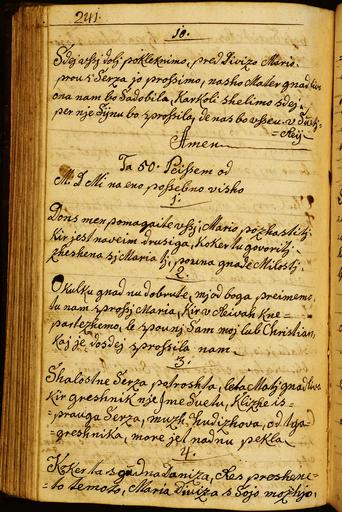 241.
10.
Sdej vssj dolj pokleknimo, pred Divizo Mario.
prou s Serza jo prossimo, nasho Mater gnad
ona nam bo Sadobila, Karkoli shelimo sdej
per nje Sijnu bo sprossila, de nas bo vsseu v
Amen
Ta 50. Peissem od
M. D. Mi na eno possebno visho
1.
Dons men pomagaite vssj, Mario pozhastitj
Kir jest navem drusiga, Koker tu govoritj
zheshena sj Maria tj, pouna gnade Milostj
2.
O kulku gnad nu dobrute, mj od boga preimemo
tu nam sprossj Maria, Kir v
partezhemo, le spounj Sam moj lub Christian
Kaj je dosdej sprossila nam
3.
Shalostne Serza potroshta, leta Matj gnad
Kir greshnik nje sme Suetu, Klizhe is
prauga Serza, muzh hudizhova, od tiga
greshnika, more jet nad nu pekla
4.
Koker ta s Daniza, Kes
to temoto, Maria Diviza s Sojo